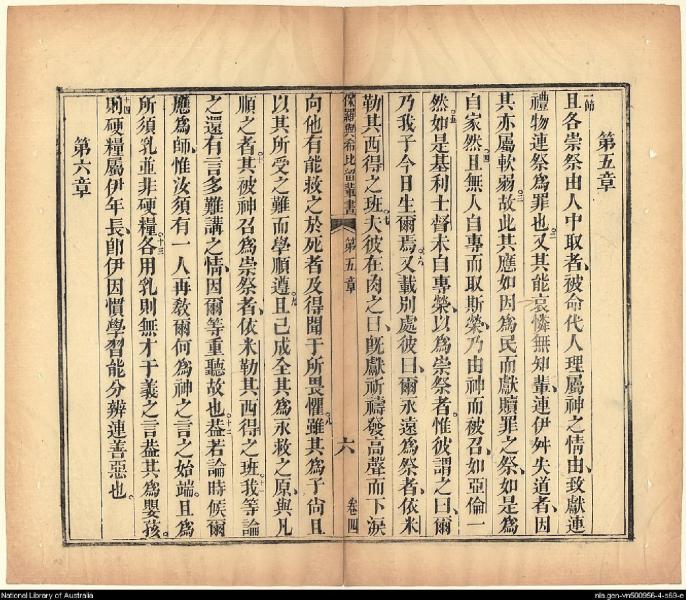 第五章
一節且各崇祭由人中取者被命代人理屬神之情由致獻連
禮物連祭為罪也二又其能哀憐無知輩連伊舛失道者因
其亦屬軟弱三故此其應如因為民而獻贖罪之祭如是為
自家然四且無人自專而取斯榮乃由神而被召如亞倫一
然五如是基利士督未自專榮以為崇祭者惟彼謂之曰爾
乃我子今日生爾焉六又載別處彼曰爾永遠為祭者依米
勒其西得之班七夫彼在肉之日既獻祈禱發高聲而下淚
保羅與希比留輩書 第五章 六 卷四
向他有能救之於死者及得聞于所畏懼八雖其為子尚且
以其所受之難而學順遵九且已成全其為永救之原與凡
順之者十其被神召為崇祭者依米勒其西得之班十一我等論
之還有言多難講之情因爾等重聽故也十二蓋若論時候爾
應為師惟汝須有一人再教爾何為神之言之始端且為
所須乳並非硬糧十三各用乳則無才于義之言蓋其為嬰孩
十四則硬糧屬伊年長即伊因慣學習能分辨連善惡也
第六章
National Library of Australia
nla.gen-vn500956-4-s69-e